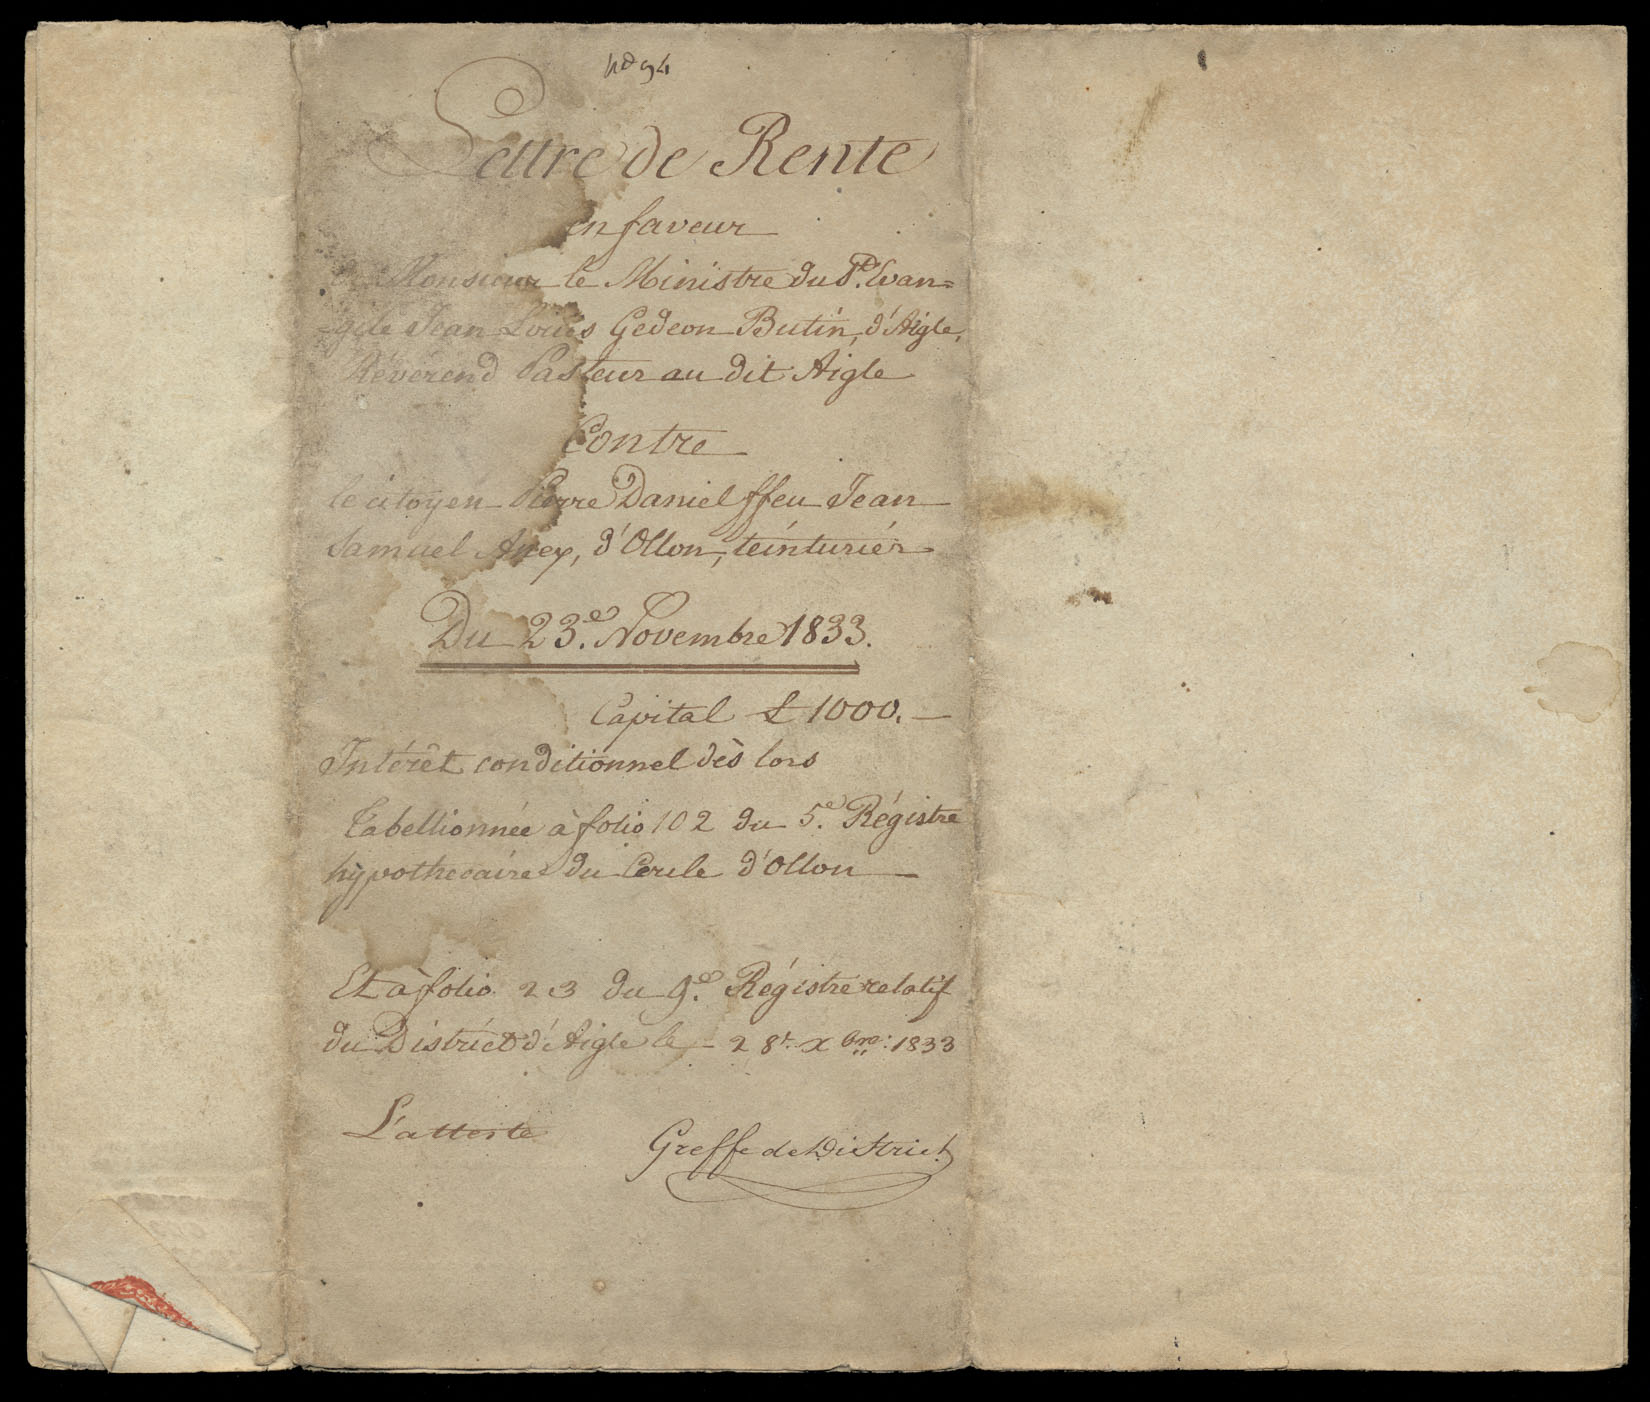 No 94
Lettre de Rente
en faveur
de Monsieur le Ministre du St. Evan=
=gile Jean Louis Gedeon Butin, d'Aigle,
Révérend Pasteur au dit Aigle
Contre
le citoyen Pierre Daniel ffeu Jean
Samuel Anex, d'Ollon, teinturier
Du 23e. Novembre 1833.
Capital £ 1000. —
Intérêt conditionnel dès lors
Tabellionnée à folio 102 du 5e. Régistre
hypothecaire du Cercle d'Ollon —
Et à folio 23 du 9e. Régistre relatif
du District d'Aigle le 28t. Xbre: 1833
L'atteste
Greffe de District